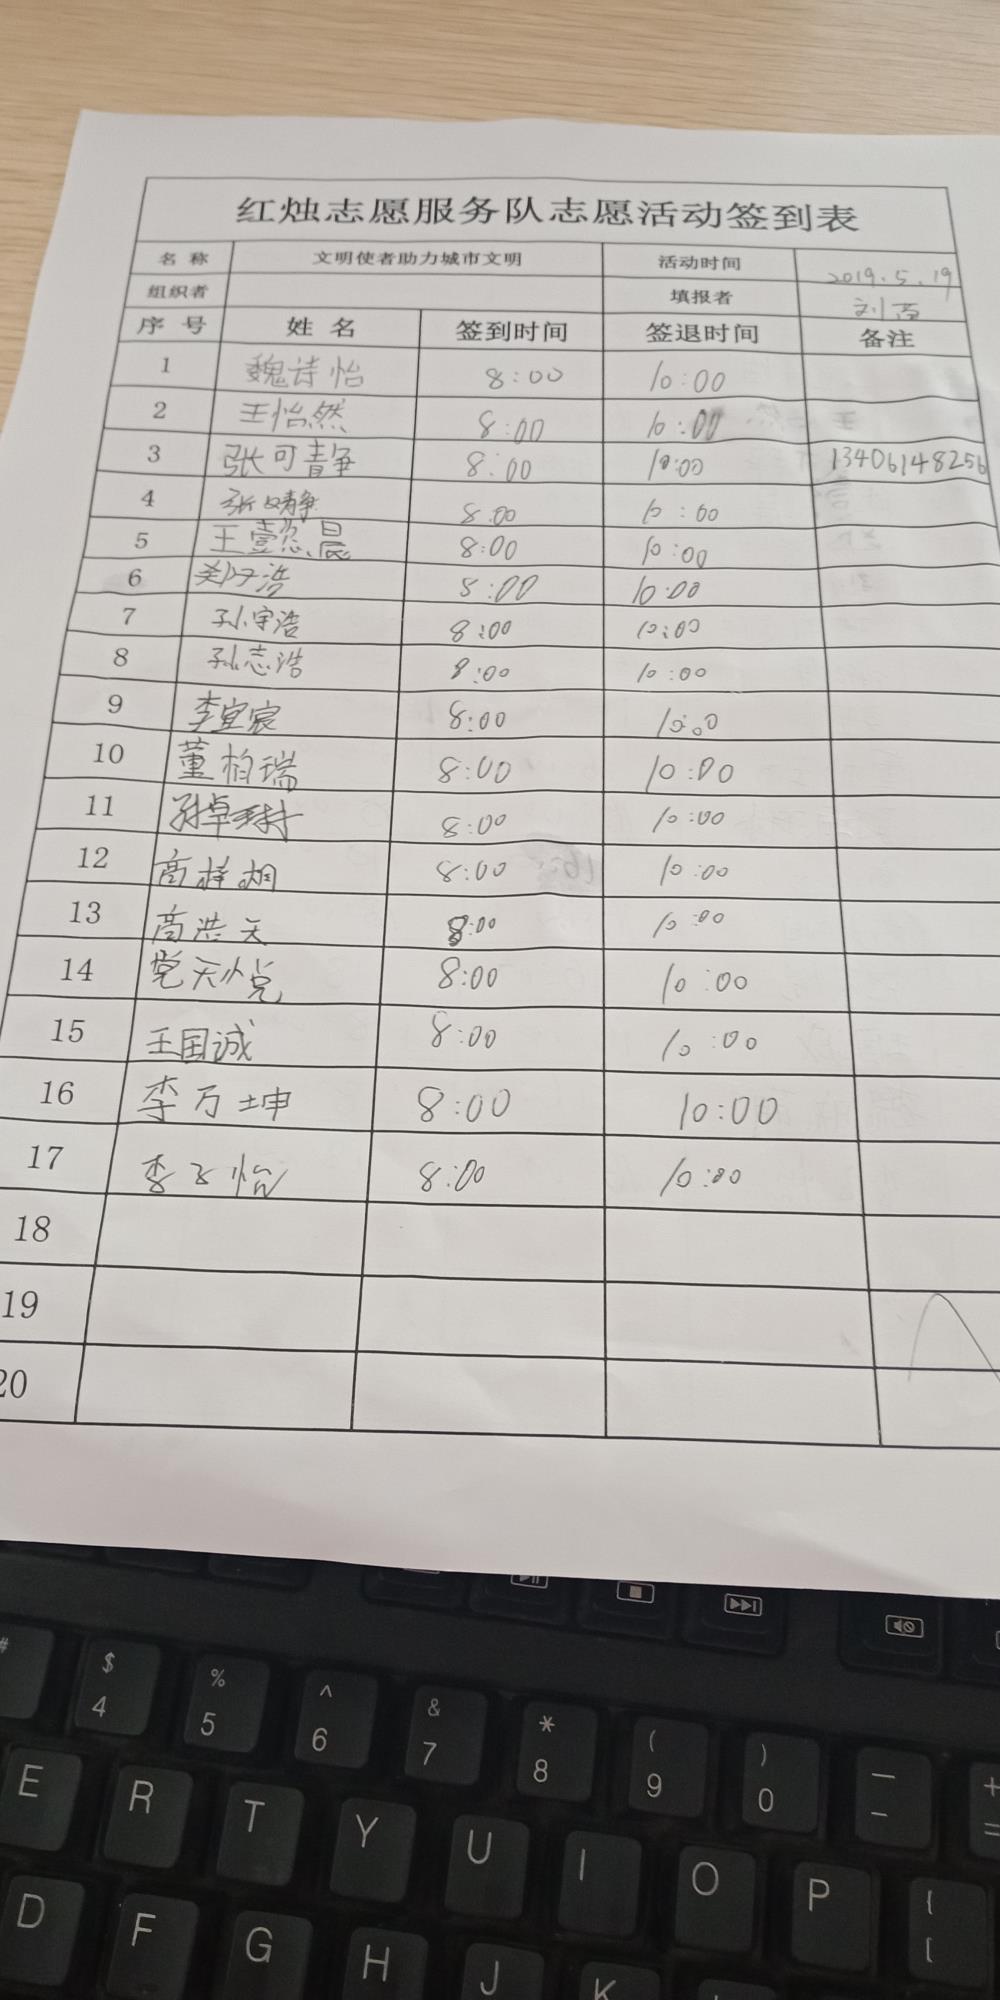 红烛志愿服务队志愿活动签到表
名 称 文明使者助力城市文明 活动时间 2019.5.19
组织者 填报者 刘
序 号 姓 名 签到时间 签退时间 备注
1 魏诗怡 8:00 10:00
2 王怡然 8:00 10:00
3 张可静 8:00 10:00 13406148256
4 张 静 8:00 10:00
5 王壹 晨 8:00 10:00
6 郑子浩 8:00 10:00
7 孙宇浩 8:00 10:00
8 孙志浩 8:00 10:00
9 李宜宸 8:00 10:00
10 董柏瑞 8:00 10:00
11 孙卓 8:00 10:00
12 高梓桐 8:00 10:00
13 高浩天 8:00 10:00
14 党天悦 8:00 10:00
15 王国诚 8:00 10:00
16 李万坤 8:00 10:00
17 李 怡 8:00 10:00
18
19
20
# $ % ^ & * ( ) — +
4 5 6 7 8 9 0 - =
E R T Y U I O P { [
D F G H J K